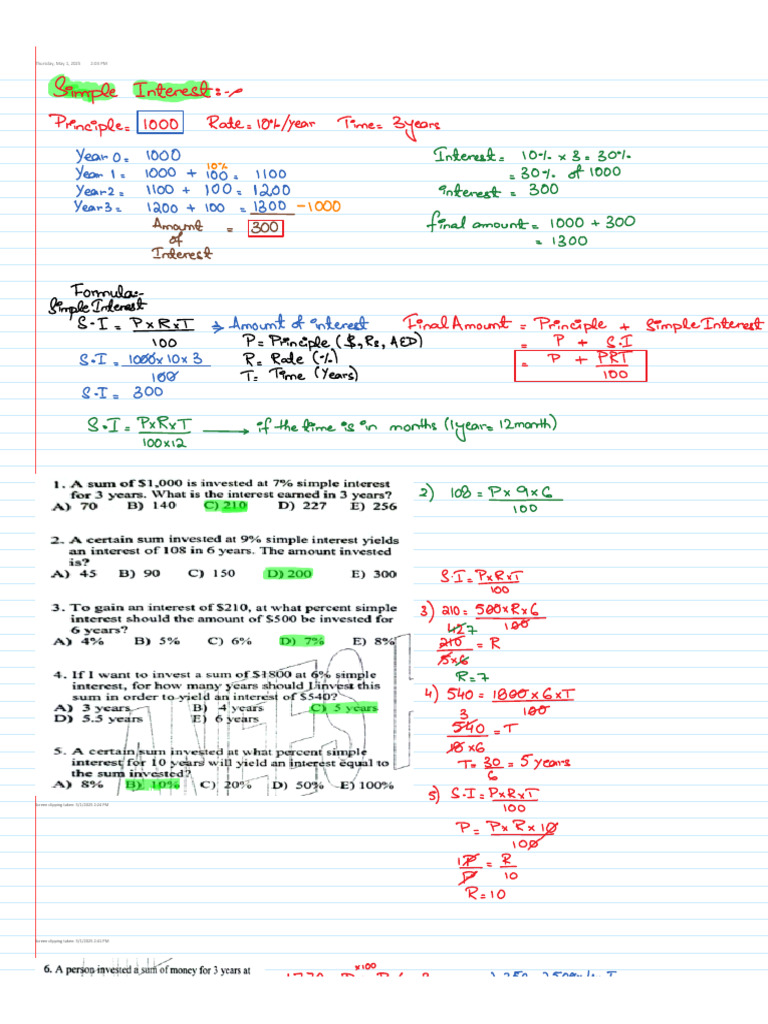 Thursday, May 1, 2025 2:04 PM
Simple Interest:-
Principle= 1000 Rate= 10%/year Time= 3years
Year 0= 1000
Year 1= 1000 + 10% 100= 1100
Year2= 1100 + 100= 1200
Year3= 1200 + 100 = 1300 -1000
Amount of Interest = 300
Interest= 10% x 3= 30%
= 30% of 1000
interest = 300
final amount= 1000 + 300
= 1300
Formula:-
Simple Interest
S.I = PxRxT / 100 => Amount of interest
P= Principle ($, Rs, AED)
R= Rate (%)
T= Time (Years)
S.I = 1000x10x3 / 100
S.I = 300
Final Amount = Principle + Simple Interest
= P + S.I
= P + PRT / 100
S.I= PxRxT / 100x12 → if the time is in months (1year= 12month)
1. A sum of $1,000 is invested at 7% simple interest
for 3 years. What is the interest earned in 3 years?
A) 70 B) 140 C) 210 D) 227 E) 256
2. A certain sum invested at 9% simple interest yields
an interest of 108 in 6 years. The amount invested
is?
A) 45 B) 90 C) 150 D) 200 E) 300
3. To gain an interest of $210, at what percent simple
interest should the amount of $500 be invested for
6 years?
A) 4% B) 5% C) 6% D) 7% E) 8%
4. If I want to invest a sum of $1800 at 6% simple
interest, for how many years should I invest this
sum in order to yield an interest of $540?
A) 3 years B) 4 years C) 5 years
D) 5.5 years E) 6 years
5. A certain sum invested at what percent simple
interest for 10 years will yield an interest equal to
the sum invested?
A) 8% B) 10% C) 20% D) 50% E) 100%
2) 108 = Px 9x6 / 100
S.I= PxRxT / 100
3) 210= 500xRx6 / 100
210 / 5x6 = R
R=7
4) 540= 1800x6xT / 100
3
540 / 18x6 = T
T= 30 / 6 = 5 years
5) S.I= PxRxT / 100
P= PxRx10 / 100
1P / P = R / 10
R=10
6. A person invested a sum of money for 3 years at
x100